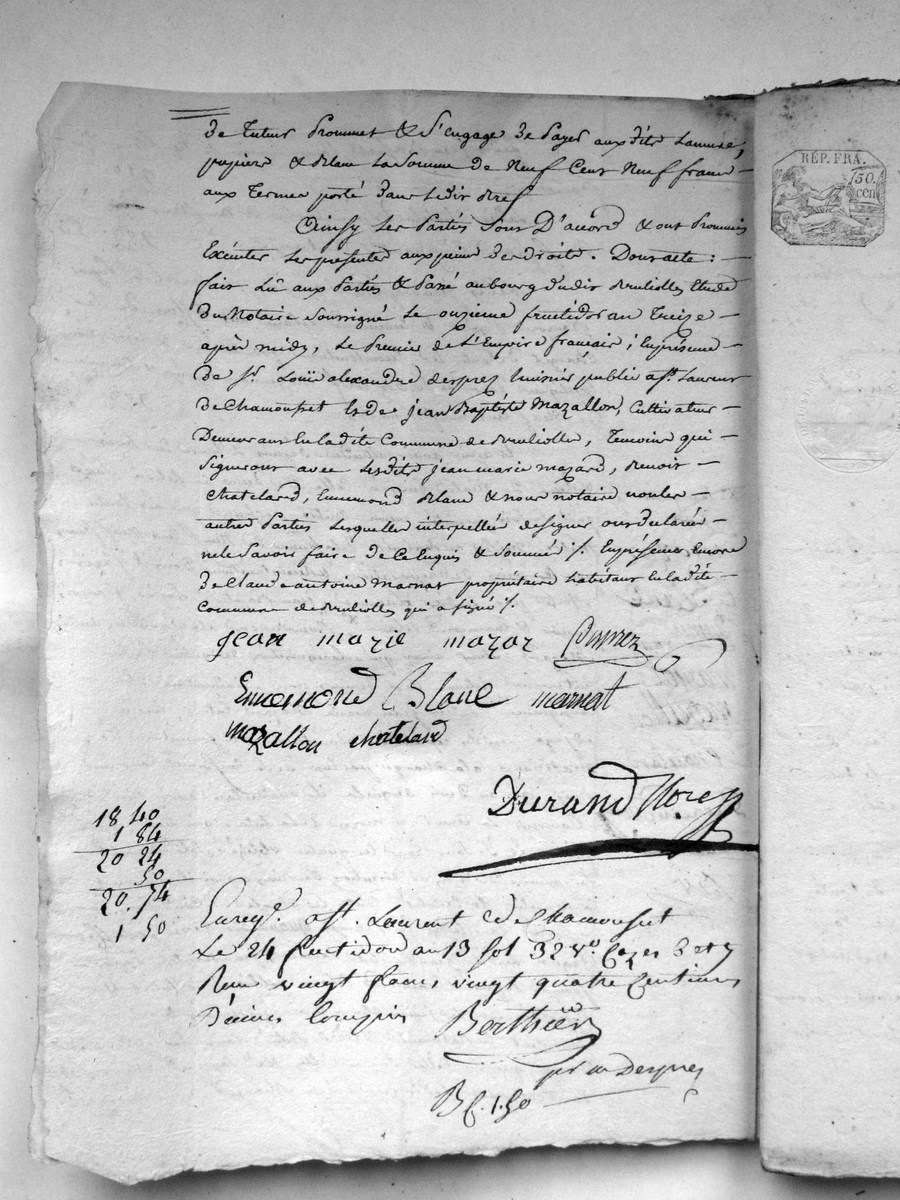 de tuteur Prommet & S'engage de Payer auxdits Lamure,
papier & Blanc La Somme de Neuf Cent Neuf franc
aux Termes porté dans Ledit Bref
Ainsy Les Partis Sont D'acord & ont Prommis
Exécuter Les présentes aux peine de droits. Dont acte :
fait Lû aux Partis & Passé au bourg dudit Brulliolles Etude
du Notaire Soussigné Le onzieme fructidor an Treize
après midy, Le Premier de L'Empire français ; En présence
de Sr. Louïs alexandre desprez huissier public a St. Laurent
de Chamousset & de jean Baptiste Mazallon, Cultivateur
Demeurant En ladite Commune de Brulliolles, Temoins qui
Signeront avec Lesdits jean marie mazard, Benoit
Chatelard, Ennemond Blanc & nous notaire non les
autres Partis Lesquelles interpellées de signer ont declarés
ne le Savoir faire de Ce Enquis & Sommés ;/. En présence Encore
de Claude antoine Marnat propriétaire habitant En ladite
Commune de Brulliolles qui a signé ;/.
jean marie mazar Desprez
Ennemond Blanc marnat
mazallon chatelard
Durand Nore
18 40
1 84
20 24
50
20.74
1 50
Enregt. a St. Laurent de Chamousset
Le 24 fructidor an 13 fol 32 Vo. Cazes 3 et
Reçu vingt francs vingt quatre Centimes
Dècime Compris Berthier
par Desprez
1.50
RÉP. FRA.
50.
cen